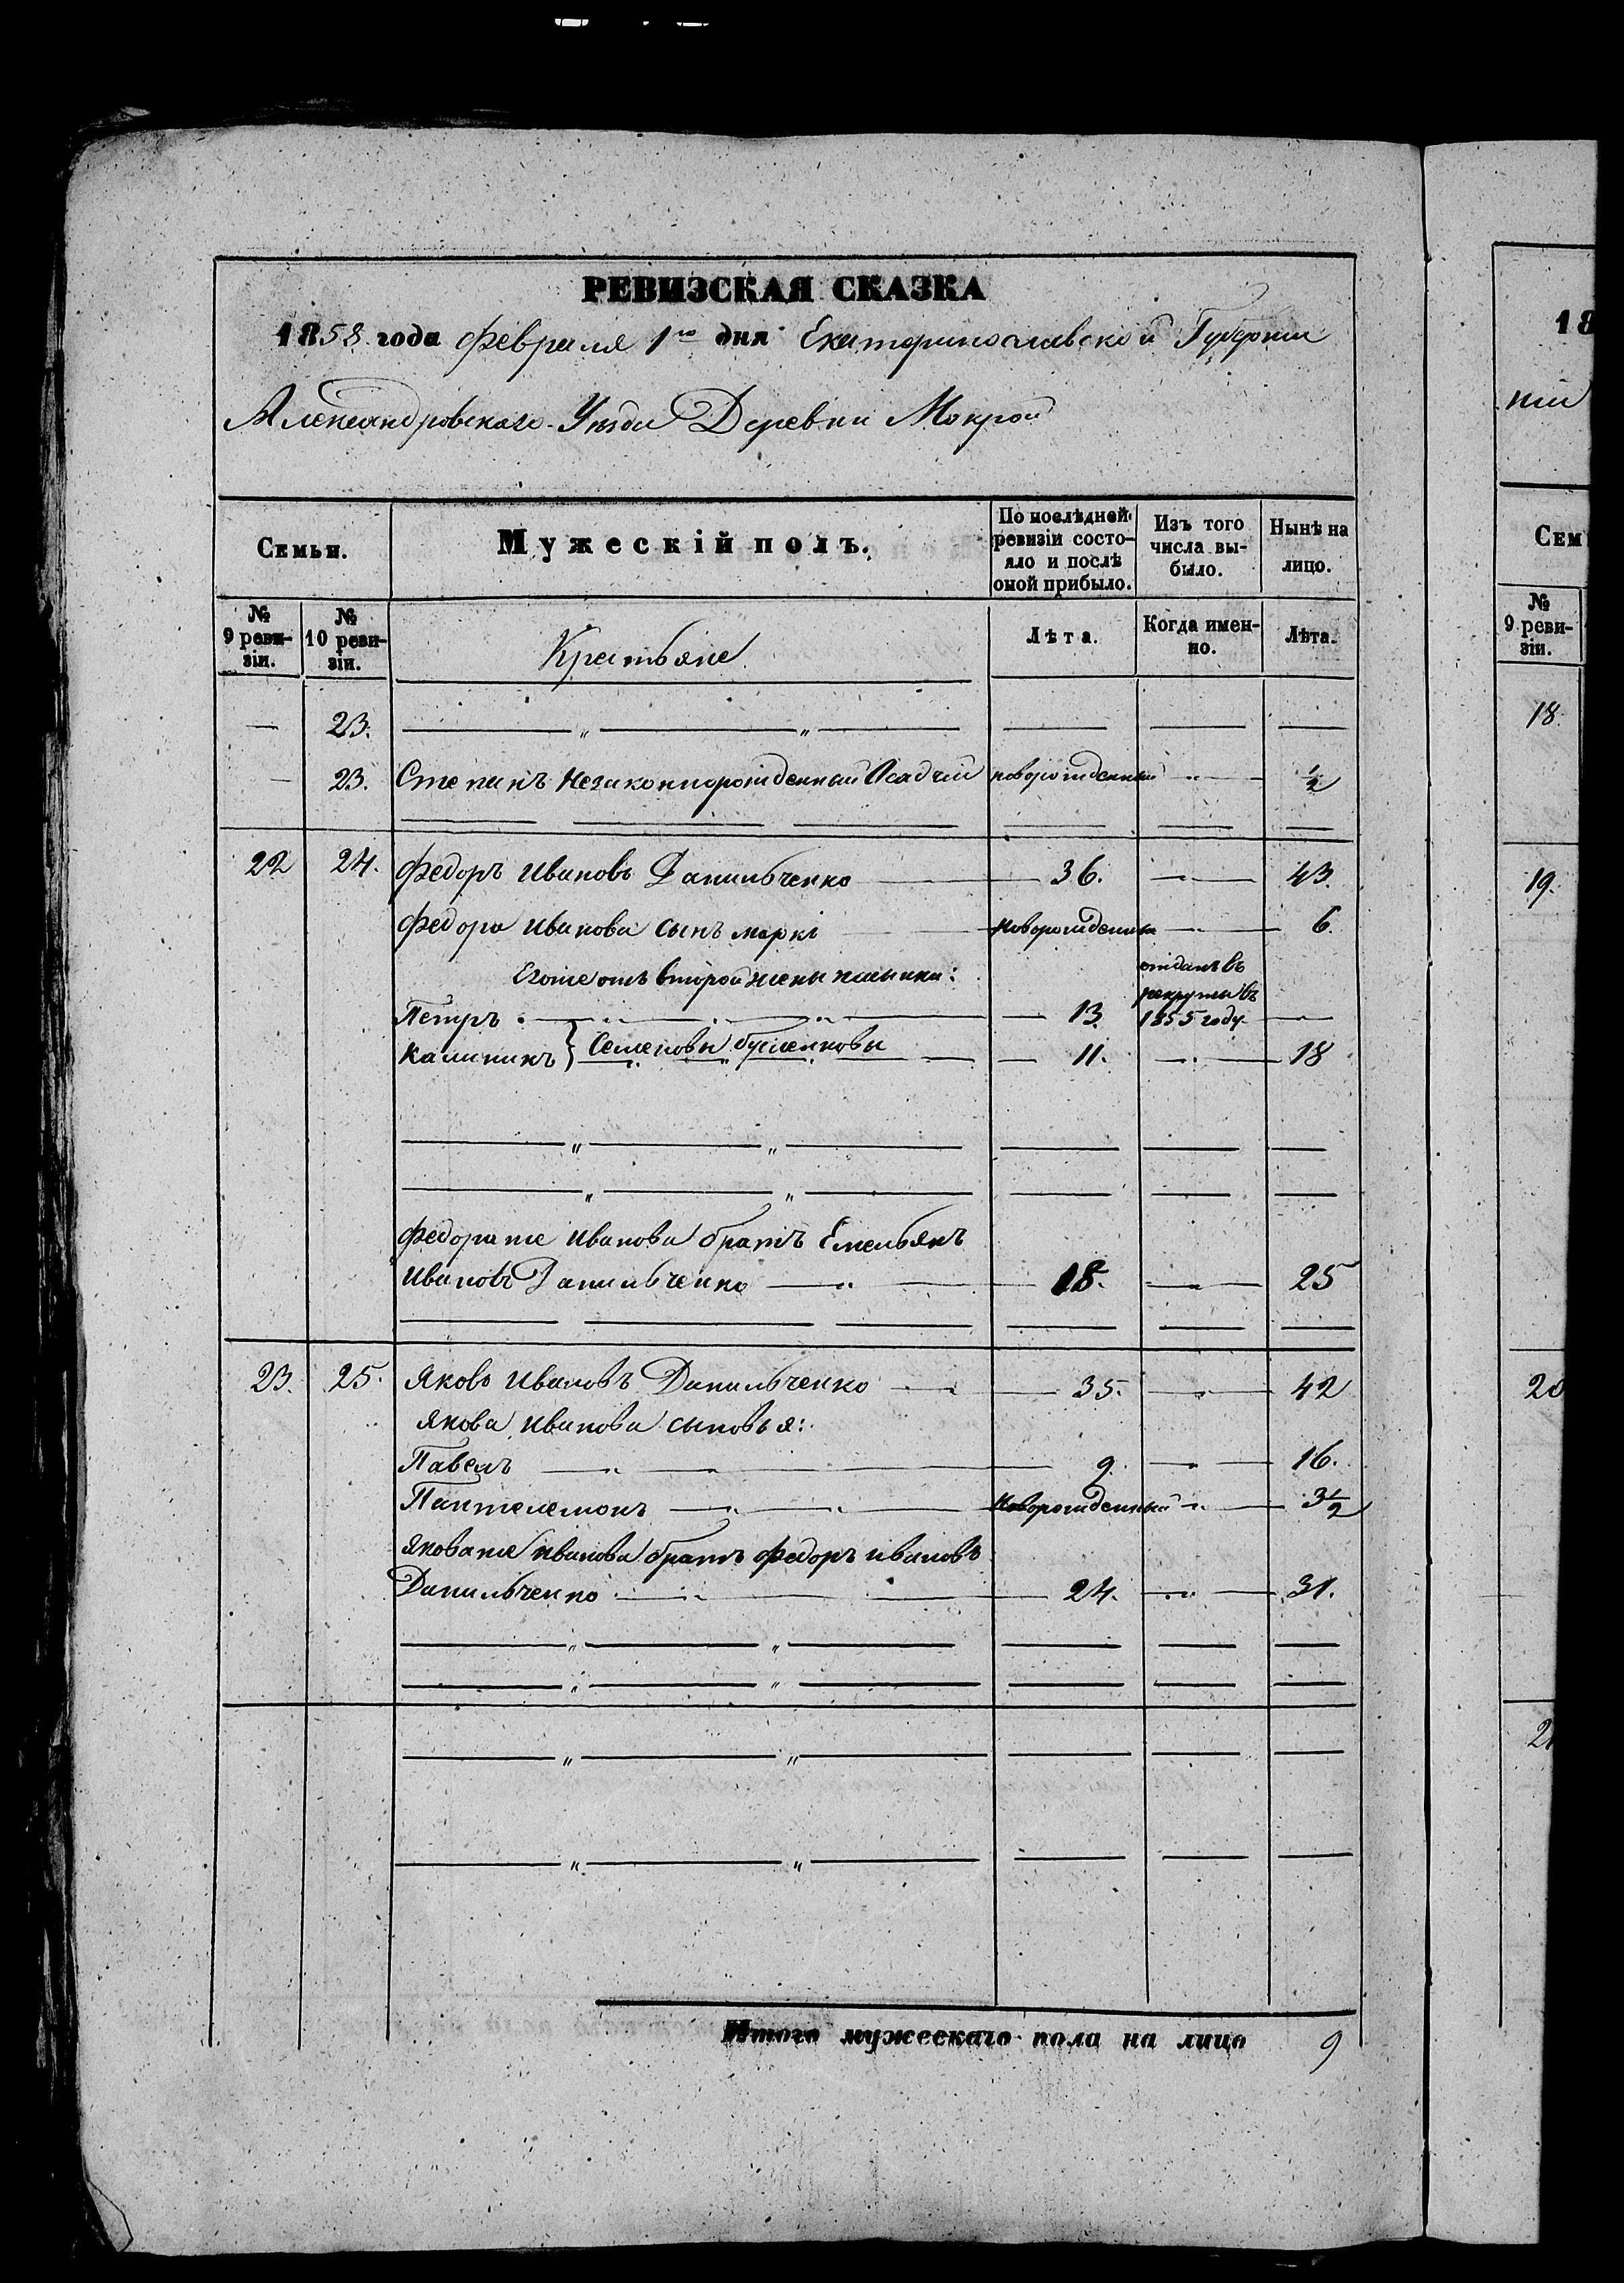 РЕВИЗСКАЯ СКАЗКА
1858 года Февраля 1го дня Екатеринославской Губернии
Александровскаго Уезда Деревни Мокрой
Семьи.
Мужескій полъ.
По послѣдней ревизіи состо-
яло и послѣ оной прибыло.
Изъ того числа вы-
было.
Нынѣ на лицо.
№ 9 реви-
зіи.
№ 10 реви-
зіи.
Крестьяне
Лѣта.
Когда имен-
но.
Лѣта.
— 23. — " — " — — — —
— 23. Степанъ Незаконнорожденный Осадчій новорожденный — " — ½
22 24. Федоръ Ивановъ Данильченко — 36. — 43.
Федора Иванова сынъ новорожденный — 6.
Егоже отъ второй жены пасынки:
Петръ — 13. отданъ въ рекруты въ 1855 году —
Калиникъ } Семеновы — 11. — 18
— " — " — — — —
— " — " — — — —
Федораже Иванова братъ Емельянъ
Ивановъ Данильченко — " — 18. — 25
23. 25. Яковъ Ивановъ Данильченко — 35. — 42
Якова Иванова сыновья:
Павелъ — " — " — 9. — " — 16.
Пантелемонъ — " — " — Новорожденный — " — 3½
Яковаже Иванова братъ Федоръ Ивановъ
Данильченко — " — 24. — " — 31.
— " — " — — — —
— " — " — — — —
— " — " — — — —
— " — " — — — —
Итого мужескаго пола на лицо 9
18
нии
Сем
№ 9 реви-
зіи.
18.
19.
20
21